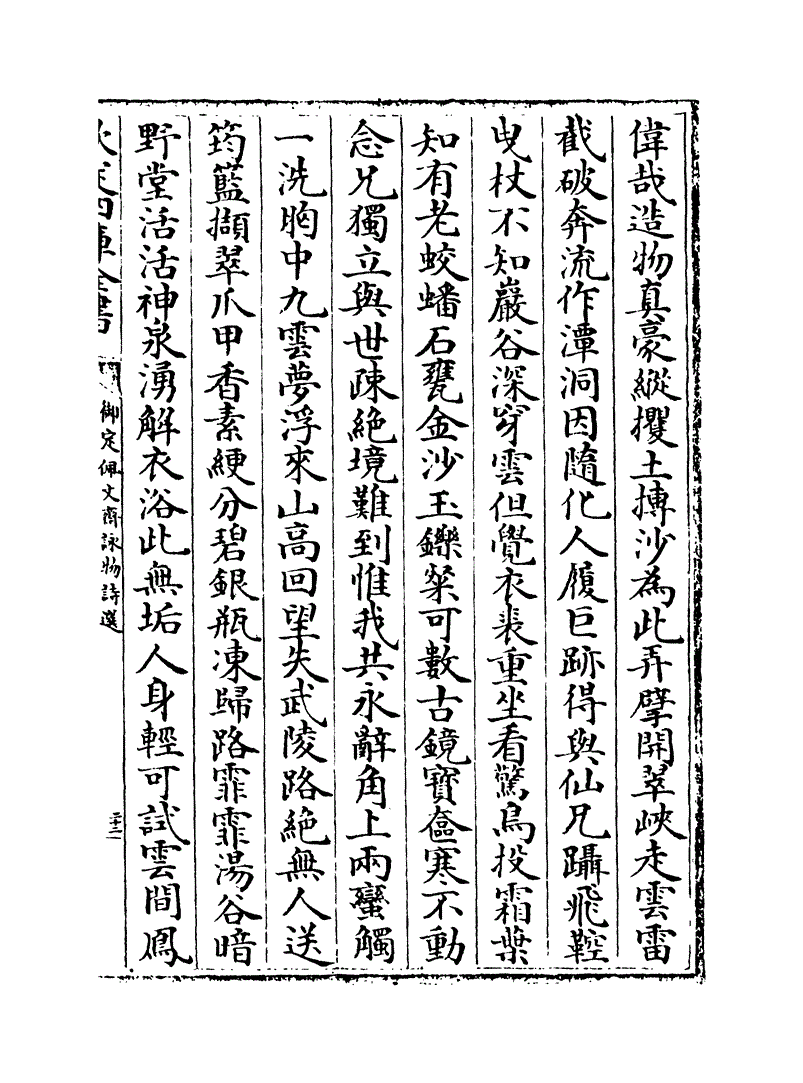 偉哉造物真豪縱攫土摶沙為此弄擘開翠峽走雲雷
截破奔流作潭洞因隨化人履巨跡得與仙兄躡飛鞚
曳杖不知巖谷深穿雲但覺衣裘重坐看驚鳥投霜葉
知有老蛟蟠石甕金沙玉鑠粲可數古鏡寳奩寒不動
念兄獨立與世疎絶境難到惟我共永辭角上兩蠻觸
一洗胸中九雲夢浮來山高回望失武陵路絶無人送
筠籃擷翠爪甲香素綆分碧銀瓶凍歸路霏霏湯谷暗
野堂活活神泉湧解衣浴此無垢人身輕可試雲間鳳
欽定四庫全書 御定佩文齋詠物詩選 二十二